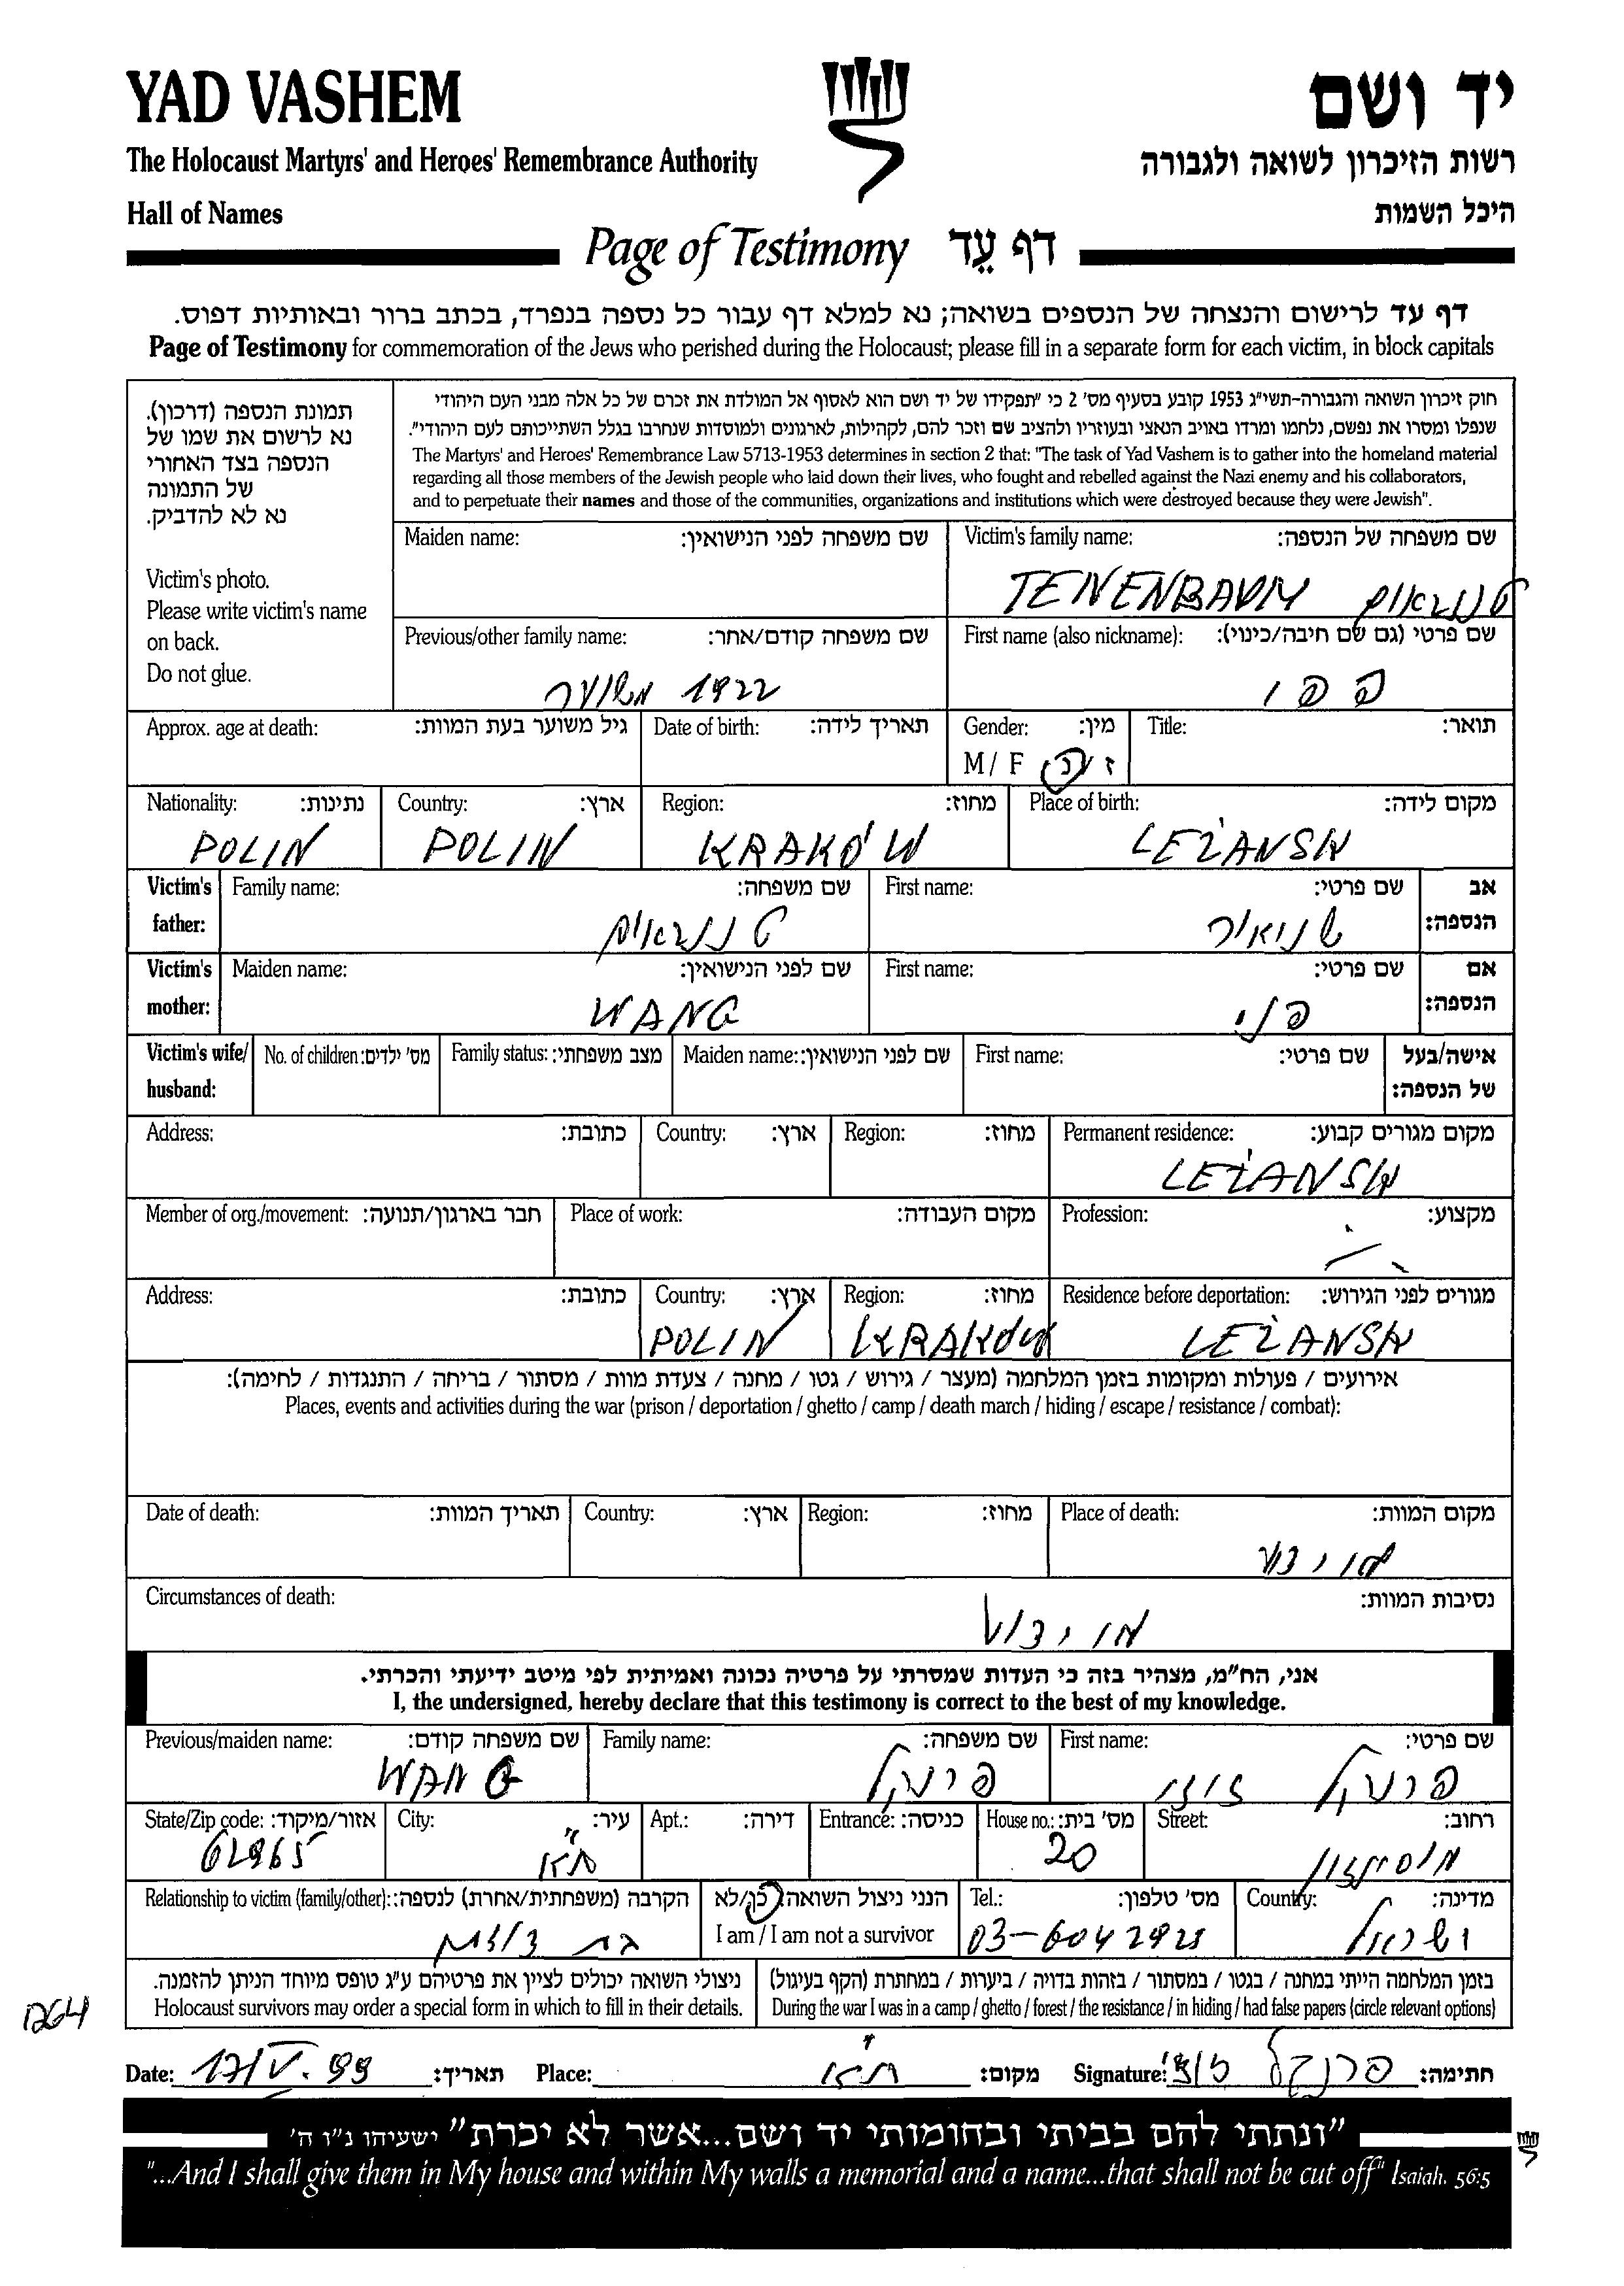 YAD VASHEM
יד ושם
The Holocaust Martyrs' and Heroes' Remembrance Authority
רשות הזיכרון לשואה ולגבורה
Hall of Names
היכל השמות
Page of Testimony דף עֵד
דף עד לרישום והנצחה של הנספים בשואה; נא למלא דף עבור כל נספה בנפרד, בכתב ברור ובאותיות דפוס.
Page of Testimony for commemoration of the Jews who perished during the Holocaust; please fill in a separate form for each victim, in block capitals
תמונת הנספה (דרכון).
נא לרשום את שמו של
הנספה בצד האחורי
של התמונה
נא לא להדביק.
Victim's photo.
Please write victim's name
on back.
Do not glue.
חוק זיכרון השואה והגבורה-תשי"ג 1953 קובע בסעיף מס' 2 כי "תפקידו של יד ושם הוא לאסוף אל המולדת את זכרם של כל אלה מבני העם היהודי
שנפלו ומסרו את נפשם, נלחמו ומרדו באויב הנאצי ובעוזריו ולהציב שם וזכר להם, לקהילות, לארגונים ולמוסדות שנחרבו בגלל השתייכותם לעם היהודי".
The Martyrs' and Heroes' Remembrance Law 5713-1953 determines in section 2 that: "The task of Yad Vashem is to gather into the homeland material
regarding all those members of the Jewish people who laid down their lives, who fought and rebelled against the Nazi enemy and his collaborators,
and to perpetuate their names and those of the communities, organizations and institutions which were destroyed because they were Jewish".
Maiden name: שם משפחה לפני הנישואין: Victim's family name: שם משפחה של הנספה:
TENENBAUM טננבאום
Previous/other family name: שם משפחה קודם/אחר: First name (also nickname): שם פרטי (גם שם חיבה/כינוי):
1922 משוער
Approx. age at death: גיל משוער בעת המוות: Date of birth: תאריך לידה: Gender: מין: Title: תואר:
M / F ז / נ
Nationality: נתינות: Country: ארץ: Region: מחוז: Place of birth: מקום לידה:
POLIN POLIN KRAKÓW LEŻANSK
Victim's father: Family name: שם משפחה: First name: שם פרטי: אב הנספה:
טננבאום שניאור
Victim's mother: Maiden name: שם לפני הנישואין: First name: שם פרטי: אם הנספה:
WANG פני
Victim's wife/ husband: No. of children: מס' ילדים: Family status: מצב משפחתי: Maiden name: שם לפני הנישואין: First name: שם פרטי: אישה/בעל של הנספה:
Address: כתובת: Country: ארץ: Region: מחוז: Permanent residence: מקום מגורים קבוע:
LEŻANSK
Member of org./movement: חבר בארגון/תנועה: Place of work: מקום העבודה: Profession: מקצוע:
Address: כתובת: Country: ארץ: Region: מחוז: Residence before deportation: מגורים לפני הגירוש:
POLIN KRAKÓW LEŻANSK
אירועים / פעולות ומקומות בזמן המלחמה (מעצר / גירוש / גטו / מחנה / צעדת מוות / מסתור / בריחה / התנגדות / לחימה):
Places, events and activities during the war (prison / deportation / ghetto / camp / death march / hiding / escape / resistance / combat):
Date of death: תאריך המוות: Country: ארץ: Region: מחוז: Place of death: מקום המוות:
לא ידוע
Circumstances of death: נסיבות המוות:
לא ידוע
אני, הח"מ, מצהיר בזה כי העדות שמסרתי על פרטיה נכונה ואמיתית לפי מיטב ידיעתי והכרתי.
I, the undersigned, hereby declare that this testimony is correct to the best of my knowledge.
Previous/maiden name: שם משפחה קודם: Family name: שם משפחה: First name: שם פרטי:
WANG
State/Zip code: אזור/מיקוד: City: עיר: Apt.: דירה: Entrance: כניסה: House no.: מס' בית: Street: רחוב:
62965 ת"א 20
Relationship to victim (family/other): הקרבה (משפחתית/אחרת) לנספה: הנני ניצול השואה: כן/לא Tel.: מס' טלפון: Country: מדינה:
I am / I am not a survivor
בת דודה 03-6042921 ישראל
ניצולי השואה יכולים לציין את פרטיהם ע"ג טופס מיוחד הניתן להזמנה. בזמן המלחמה הייתי במחנה / בגטו / במסתור / בזהות בדויה / ביערות / במחתרת (הקף בעיגול)
Holocaust survivors may order a special form in which to fill in their details. During the war I was in a camp / ghetto / forest / the resistance / in hiding / had false papers (circle relevant options)
1264
Date: 17/V.99 תאריך: Place: ת"א מקום: Signature: חתימה:
"ונתתי להם בביתי ובחומותי יד ושם...אשר לא יכרת" ישעיהו נ"ו ה'
"...And I shall give them in My house and within My walls a memorial and a name...that shall not be cut off" Isaiah. 56:5